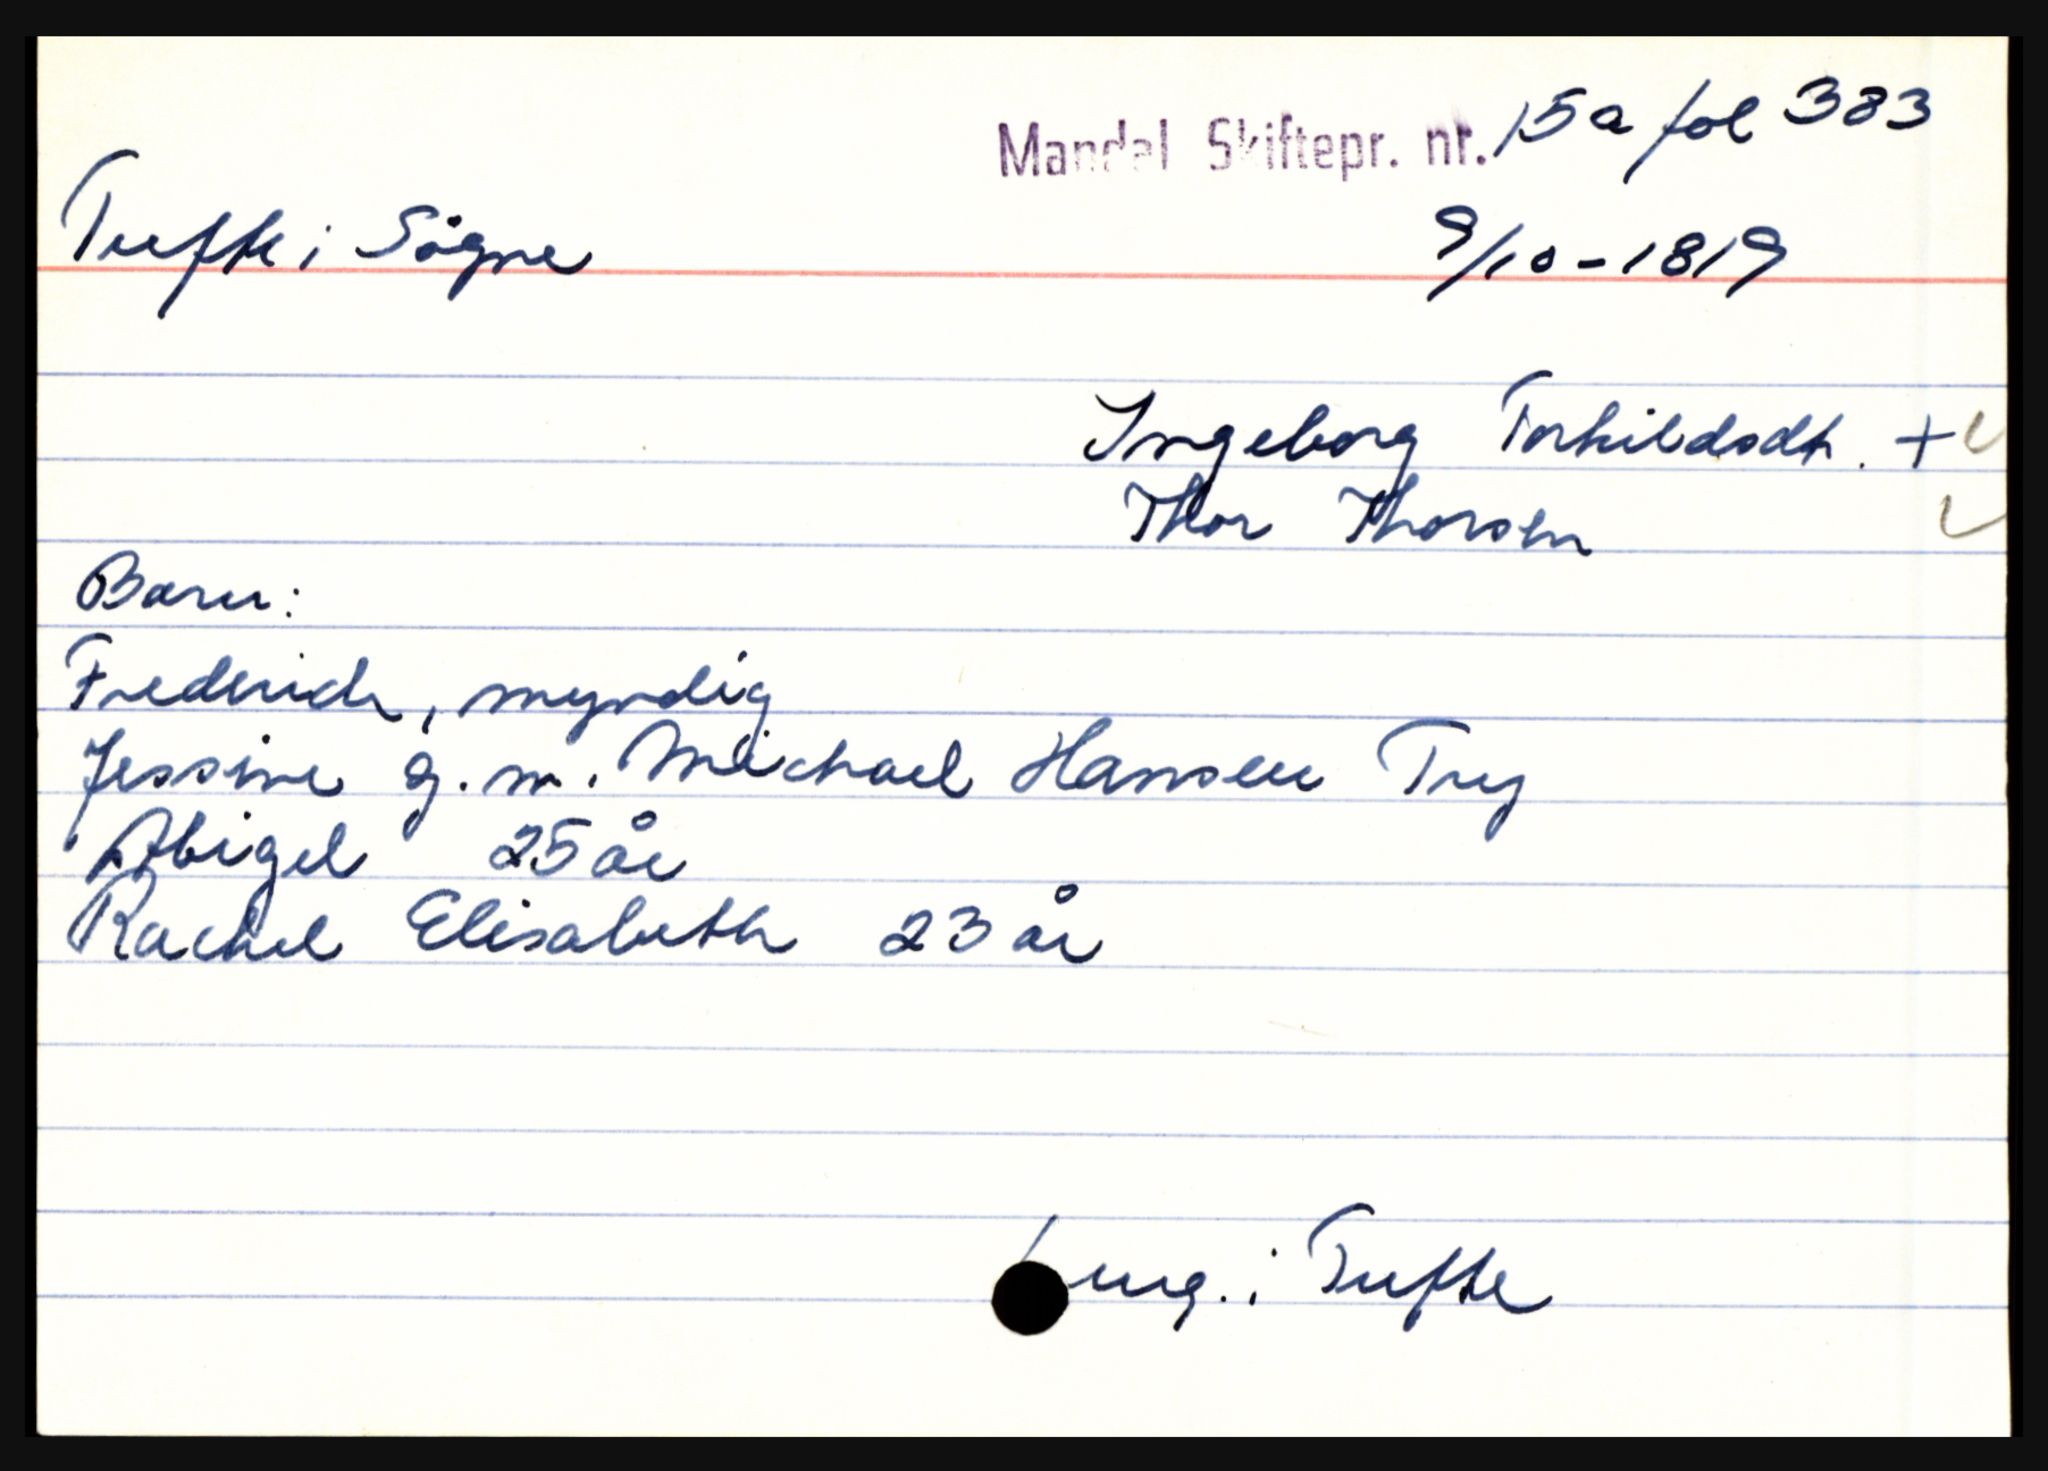 Mandal Skiftepr. nr. 15a fol 383
Tufte i Sögne 9/10-1819
Ingeborg Torkildsdt. +
Thor Thorsen
Barn:
Frederich, myndig
Jessine g.m. Michael Hansen Try
Abigel 25 år
Rachel Elisabeth 23 år
i Tufte